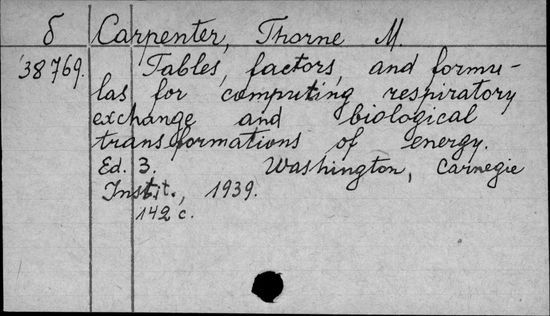 б Carpenter, Thorne M.
38769. Tables, factors, and formu-
las for computing respiratory
exchange and biological
transformations of energy.
Ed. 3. Washington, Carnegie
Instit., 1939.
142 c.